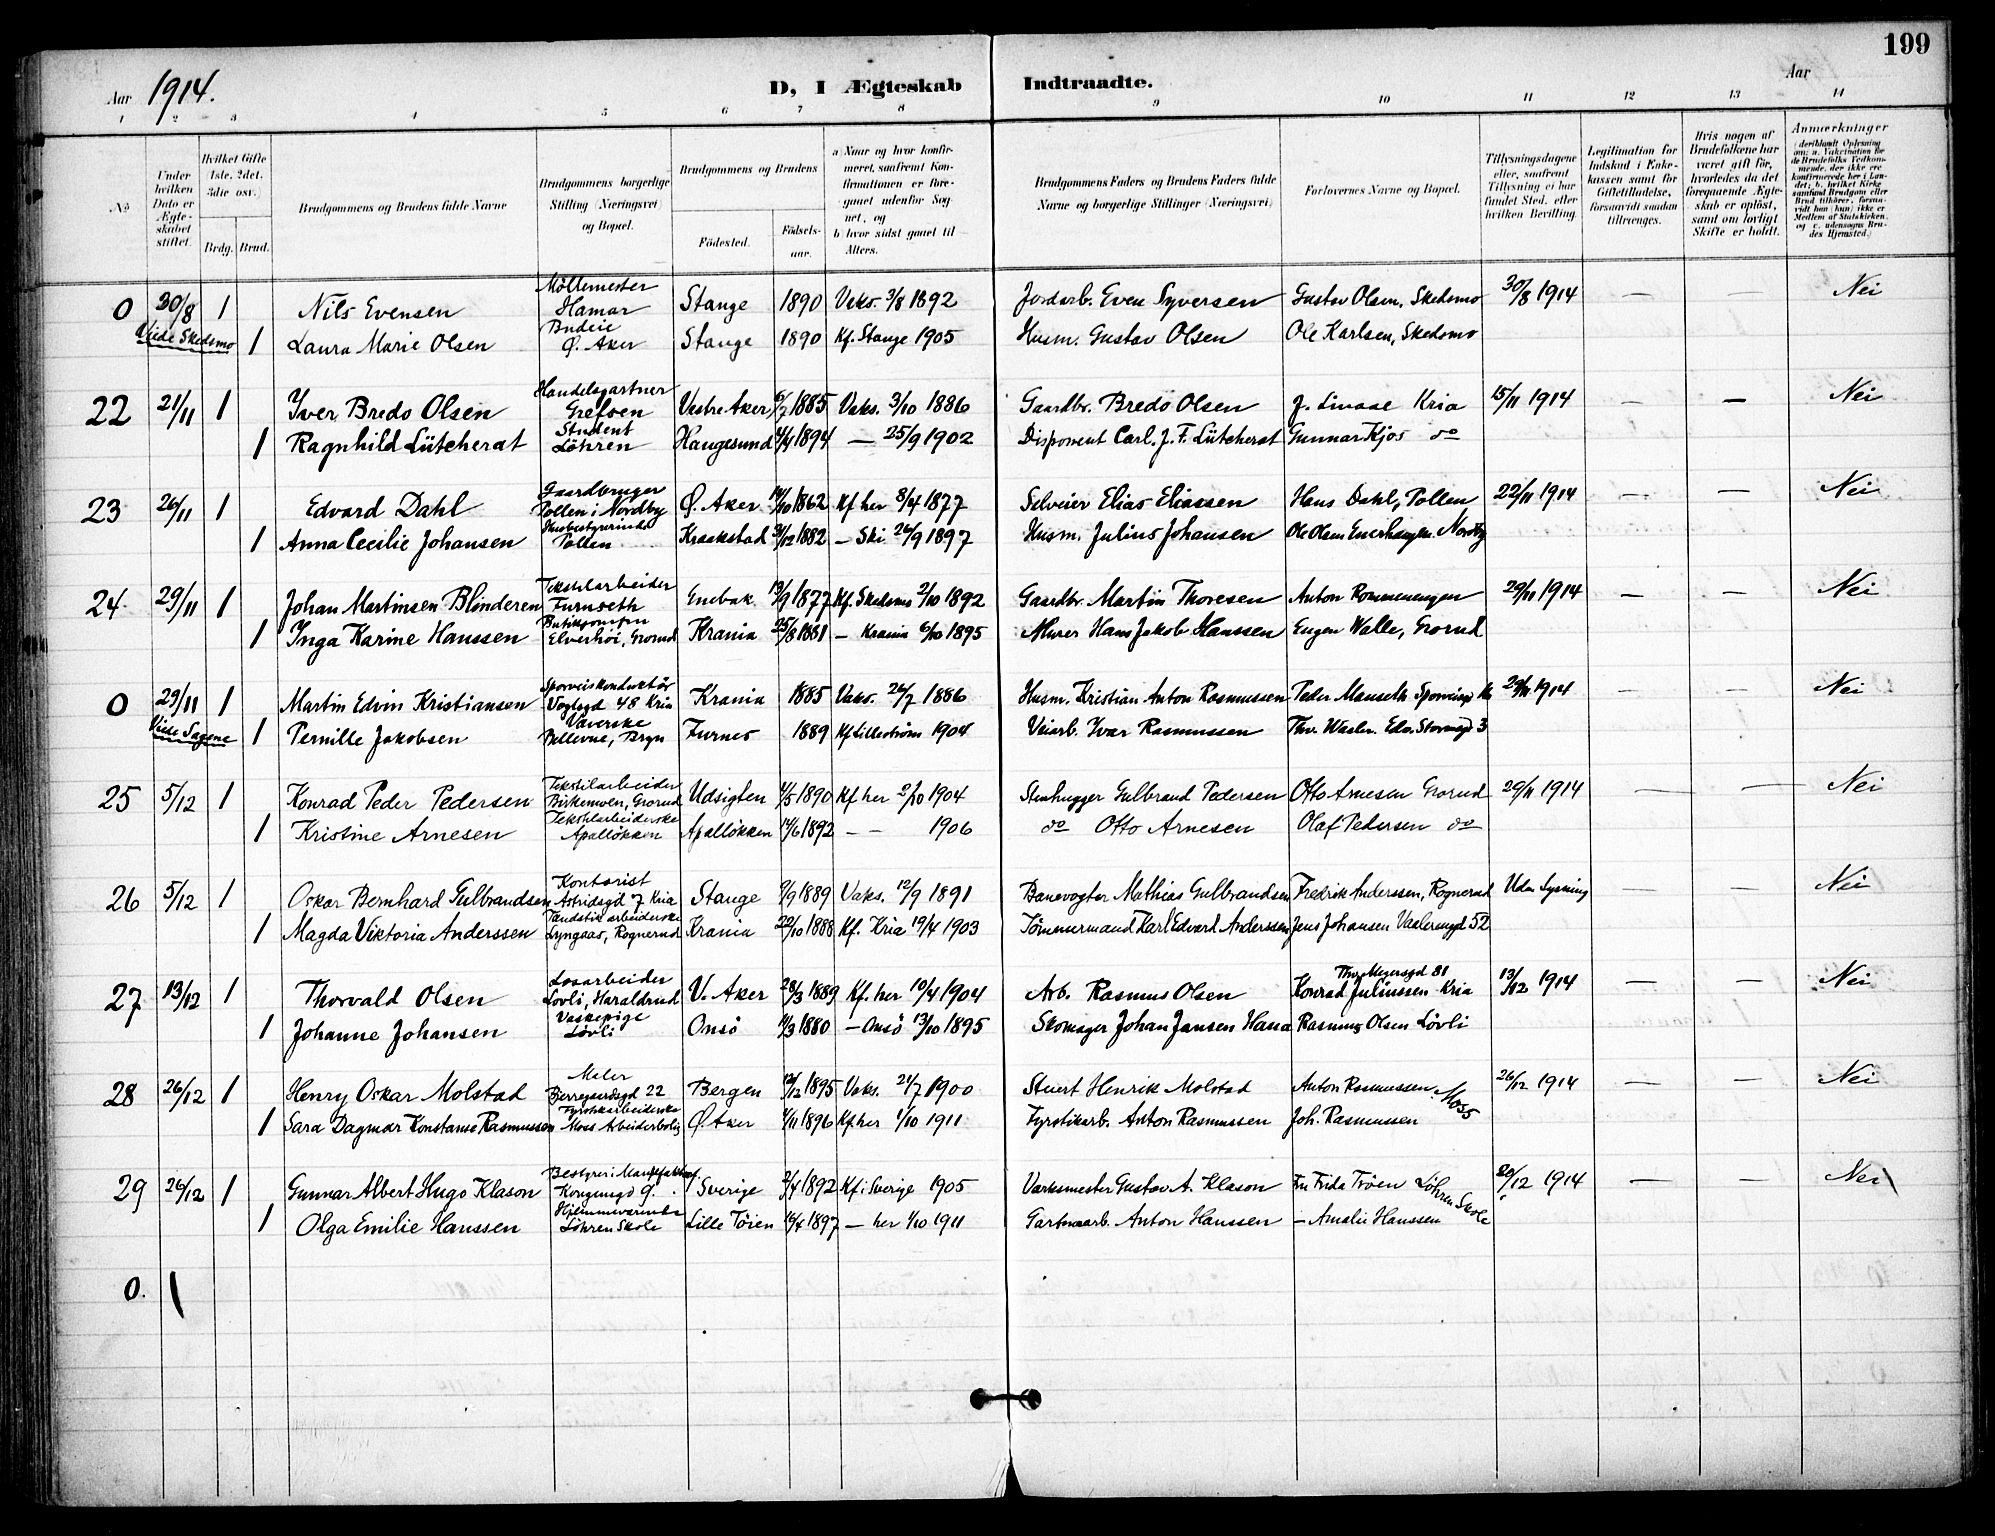 199
Aar 1914. D, I Ægteskab Indtraadte. Aar
1 2 3 4 5 6 7 8 9 10 11 12 13 14
No.
Under hvilken Dato er Ægteskabet stiftet.
Hvilket Gifte 1ste. 2det. 3die osv.)
Brdg. Brud.
Brudgommens og Brudens fulde Navne
Brudgommens borgerlige Stilling (Næringsvei) og Bopæl.
Brudgommens og Brudens
Fødested. Fødselsaar.
a) Naar og hvor konfirmeret, saafremt Konfirmationen er foregaaet udenfor Sognet, og
b) hvor sidst gaaet til Alters.
Brudgommens Faders og Brudens Faders fulde Navne og borgerlige Stillinger (Næringsvei)
Forlovernes Navne og Bopæl.
Tillysningsdagene eller, saafremt Tillysning ei har fundet Sted, efter hvilken Bevilling.
Legitimation for Indskud i Enkekassen samt for Giftetilladelse, forsaavidt saadan tiltrænges.
Hvis nogen af Brudefolkene har været gift før, hvorledes da det foregaaende Ægteskab er opløst, samt om lovligt Skifte er holdt.
Anmærkninger
0 30/8 1 Nils Evensen Möllemester Hamar Stange 1890 Vaks. 3/8 1892 Jordarb. Even Syversen Gustav Olsen, Skedsmo 30/8 1914 — — Nei
Viede Skedsmo 1 Laura Marie Olsen Budeie Ø. Aker Stange 1890 Kf. Stange 1905 Husm. Gustav Olsen Ole Karlsen, Skedsmo
22 21/11 1 Iver Bredo Olsen Handelsgartner Grefsen Vestre Aker 6/7 1885 Vaks. 3/10 1886 Gaardbr. Bredo Olsen Kria 15/11 1914 — — Nei
1 Ragnhild Lütcherat Student Löhren Haugesund 4/4 1894 — 25/9 1902 Disponent Carl. J. F. Lütcherat Gunnar Kjos do
23 26/11 1 Edvard Dahl Gaardbruger Pollen i Nordby Ø. Aker 14/10 1862 Kf her 8/4 1877 Selveier Elias Eliassen Hans Dahl, Pollen 22/11 1914 — — Nei
1 Anna Cecilie Johansen Husbestyrerinde Pollen Kraakstad 31/12 1882 — Ski 26/9 1897 Husm. Julius Johansen Ole Olsen Nordby
24 29/11 1 Johan Martinsen Blinderen Tekstilarbeider Furuseth Enebak 13/9 1877 Kf. Skedsmo 2/10 1892 Gaardbr. Martin Thoresen Anton Rommenengen 29/11 1914 — — Nei
1 Inga Karine Hanssen Butikjomfru Elverhöi, Grorud Krania 25/8 1881 — Krania 6/10 1895 Murer Hans Jakob Hanssen Eugen Walle, Grorud
0 29/11 1 Martin Edvin Kristiansen Sporveiskonduktör Vogtsgd 48 Kria Krania 1885 Vaks. 26/7 1886 Husm. Kristian Anton Rasmussen Peder Manseth 29/11 1914 — — Nei
Viede Sagene 1 Pernille Jakobsen Væverske Bellevue, Bryn Furnes 1889 Kf Lilleström 1904 Veiarb. Ivar Rasmussen
25 5/12 1 Konrad Peder Pedersen Tekstilarbeider Birkemoen, Grorud Udsigten 1/5 1890 Kf her 2/10 1904 Stenhugger Gulbrand Pedersen Otto Arnesen Grorud 29/11 1914 — — Nei
1 Kristine Arnesen Tekstilarbeiderske Apalløkken Apalløkken 14/6 1892 — — 1906 do Otto Arnesen Olaf Pedersen do
26 5/12 1 Oskar Bernhard Gulbrandsen Kontorist Astridsgd 7 Kria Stange 9/9 1889 Vaks. 12/9 1891 Banevogter Mathias Gulbrandsen Fredrik Anderssen, Rognerud Uden Lysning — — Nei
1 Magda Viktoria Anderssen Tændstikarbeiderske Lyngaas, Rognerud Krania 22/10 1888 Kf. Kria 19/4 1903 Tömmermand Karl Edvard Anderssen Jens Johansen Vaalerengd 52
27 13/12 1 Thorvald Olsen Løsarbeider Lövli, Haraldrud V. Aker 28/3 1889 Kf. her 10/4 1904 Arb. Rasmus Olsen Thv. Meyersgd 81 Konrad Juliussen Kria 13/12 1914 — — Nei
1 Johanne Johansen Vaskepige Løvli Onsö 11/3 1880 — Onsö 13/10 1895 Skomager Johan Jansen Hassa Rasmus Olsen Lövli
28 26/12 1 Henry Oskar Molstad Maler 22 Bergen 12/12 1895 Vaks. 21/7 1900 Stuert Henrik Molstad Anton Rasmussen Moss 26/12 1914 — — Nei
1 Sara Dagmar Konstanse Rasmussen Fyrstikarbeiderske Moss Arbeiderbolig Ø. Aker 4/11 1896 Kf. her 1/10 1911 Fyrstikarb. Anton Rasmussen Joh. Rasmussen
29 26/12 1 Gunnar Albert Hugo Klason Bestyrer i Manufakturf. Kongensgd 9. Sverige 2/4 1892 Kf i Sverige 1905 Værksmester Gustav A. Klason Fru Frida Tröen Löhren Skole 20/12 1914 — — Nei
1 Olga Emilie Hanssen Hjemmeværende Löhren Skole Lille Töien 16/4 1897 — her 1/10 1911 Gartnerarb. Anton Hanssen — Amalie Hanssen
0.